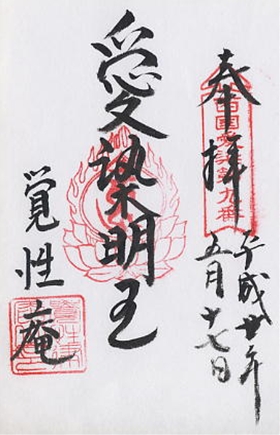 奉拝
西国愛染第九番
平成廿年
五月十七日
愛染明王
覚性庵